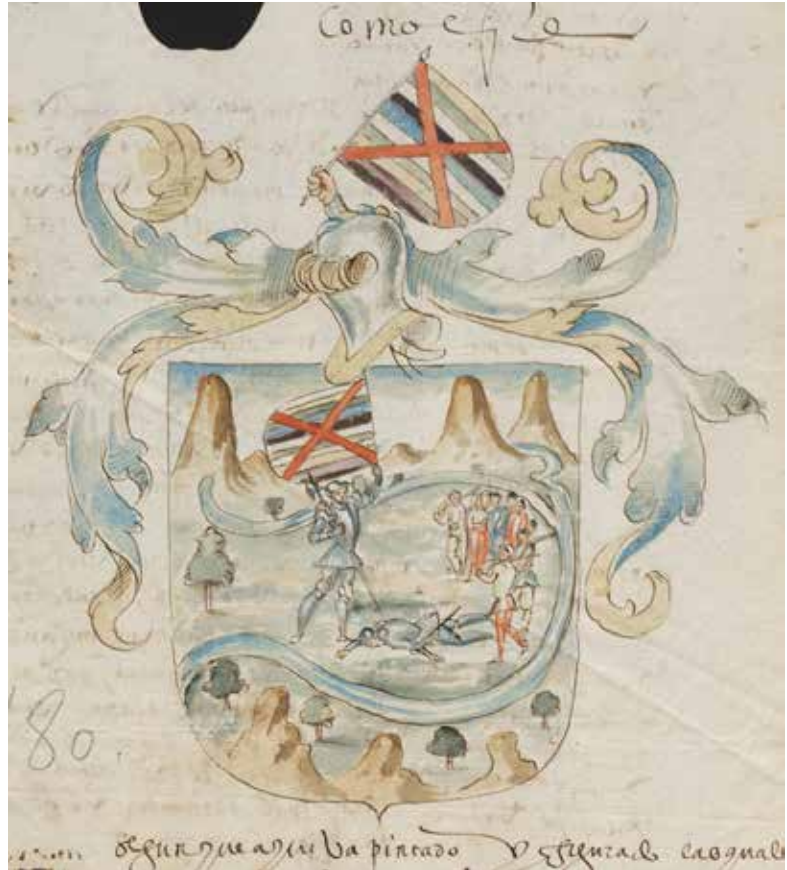 Como este
80
segun que aqui ba pintado y figurado las quale